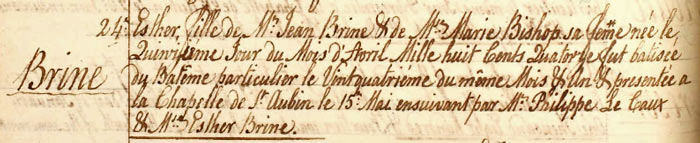 24. Esther, fille de Mr. Jean Brine & de Mrs. Marie Bishop sa fēme née le
Quinzieme Jour du Mois d'Avril Mille huit Cents Quatorze fut batisée
Brine
du Batême particulier le Vintquatrieme du même Mois & An & presentée a
la Chapelle de St. Aubin le 15e. Mai ensuivant par Mr. Philippe Le Caux
& Mrs. Esther Brine.